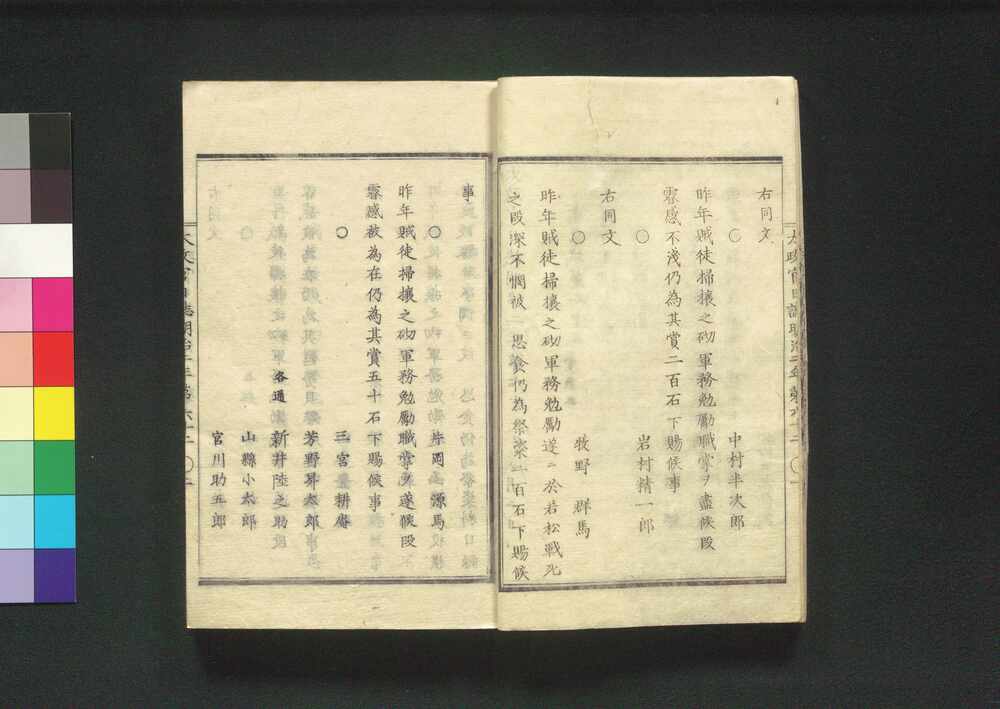 右同文
○ 中村半次郎
昨年賊徒掃攘之砌軍務勉勵職掌ヲ盡候段
叡感不淺仍為其賞二百石下賜候事
○ 岩村精一郎
右同文
○ 牧野 群馬
昨年賊徒掃攘之砌軍務勉勵遂ニ於若松戰死
之段深不憫被 思食仍為祭粢二百石下賜候
事
○ 片岡 源馬
昨年賊徒掃攘之砌軍務勉勵職掌ヲ遂候段
叡感被為在仍為其賞五十石下賜候事
○ 三宮 耕庵
芳野昇太郎
各通 新井陸之助
山縣小太郎
宮川助五郎
太政官日誌明治二年第六十二